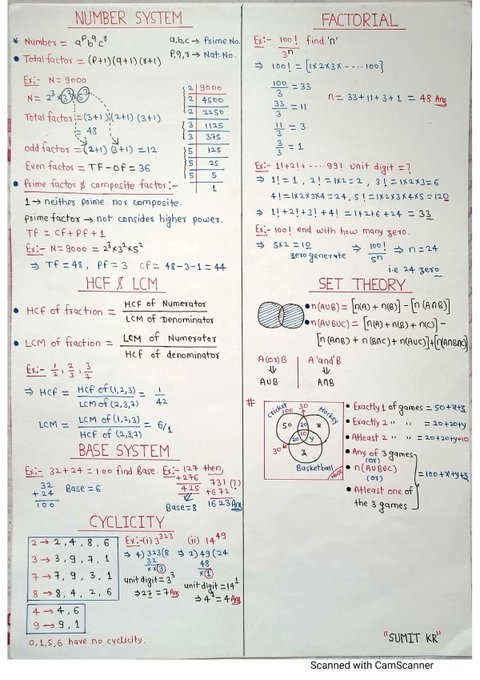 NUMBER SYSTEM
* Number = a^p b^q c^r    a,b,c → Prime No.
p,q,r → Nat. No.
• Total factor = (p+1)(q+1)(r+1)
Ex:- N = 9000
N = 2^3 × 3^2 × 5^3
Total factor = (3+1)(2+1)(3+1)
= 48
odd factor = (2+1)(3+1) = 12
Even factor = TF - OF = 36
2 | 9000
2 | 4500
2 | 2250
3 | 1125
3 | 375
5 | 125
5 | 25
5 | 5
1
• Prime factor & composite factor:-
1 → neither prime nor composite.
prime factor → not consider higher power.
TF = CF + PF + 1
Ex:- N = 9000 = 2^3 × 3^2 × 5^2
⇒ TF = 48, PF = 3 CF = 48-3-1 = 44
HCF & LCM
• HCF of fraction = HCF of Numerator / LCM of Denominator
• LCM of fraction = LCM of Numerator / HCF of denominator
Ex:- 1/2, 2/3, 3/7
⇒ HCF = HCF of (1,2,3) / LCM of (2,3,7) = 1/42
LCM = LCM of (1,2,3) / HCF of (2,3,7) = 6/1
BASE SYSTEM
Ex:- 32+24 = 100 find Base.
32
+ 24
100
Base = 6
Ex:- 127 then,
+276
425
Base = 8
731 (?)
+672
1623 Ans
CYCLICITY
2 → 2, 4, 8, 6
3 → 3, 9, 7, 1
7 → 7, 9, 3, 1
8 → 8, 4, 2, 6
4 → 4, 6
9 → 9, 1
0,1,5,6 have no cyclicity.
Ex:- (i) 3^323
⇒ 4) 323 (8
32
× × 3
unit digit = 3^3
⇒ 27 = 7 Ans
(ii) 14^49
⇒ 2) 49 (24
48
× 1
unit digit = 14^1
⇒ 4^1 = 4 Ans
FACTORIAL
Ex:- 100! / 3^n find 'n'
⇒ 100! = [1×2×3× ---- 100]
100/3 = 33
33/3 = 11
11/3 = 3
3/3 = 1
n = 33+11+3+1 = 48 Ans
Ex:- 1!+2!+ ---- 99! unit digit = ?
⇒ 1! = 1, 2! = 1×2 = 2, 3! = 1×2×3 = 6
4! = 1×2×3×4 = 24, 5! = 1×2×3×4×5 = 120
⇒ 1!+2!+3!+4! = 1+2+6+24 = 33
Ex:- 100! end with how many zero.
⇒ 5×2 = 10
zero generate
⇒ 100! / 5^n ⇒ n = 24
i.e 24 zero
SET THEORY
• n(AUB) = [n(A) + n(B)] - [n(A∩B)]
• n(AUBUC) = [n(A) + n(B) + n(C)] -
[n(A∩B) + n(B∩C) + n(AUC)] + [n(A∩B∩C)]
A(or)B
⇓
AUB
A'and'B
⇓
A∩B
#
Cricket
100
30
Hockey
50
20
x
20
10
y
30
z
Basketball
• Exactly 1 of games = 50+x+z
• Exactly 2 " " = 20+20+y
• Atleast 2 " " = 20+20+y+10
• Any of 3 games
(or)
• n(AUBUC)
(or)
• Atleast one of
the 3 games
= 100+x+y+z
"SUMIT KR"
Scanned with CamScanner